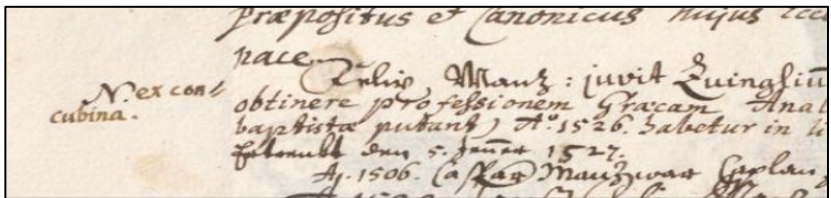 Præpositus et Canonicus hujus Eccl
pace.
N ex con⸗
cubina.
Felix Manz : juvit Zuinglium̄
obtinere professionem Græcam Ana
baptistæ putant) Aº. 1526. habetur in li
Ertrenkt den 5. Jenner 1527.
Aº. 1506. Caspar Manz war Caplan